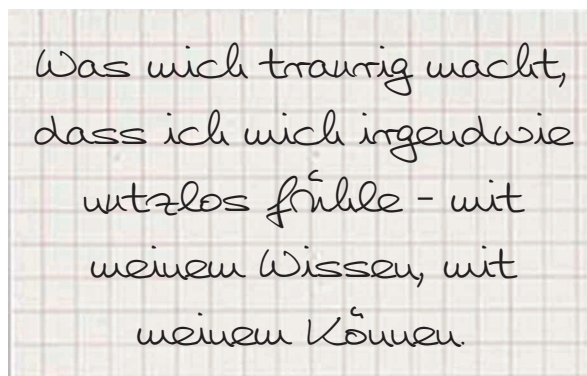 Was mich traurig macht,
dass ich mich irgendwie
nutzlos fühle - mit
meinem Wissen, mit
meinem Können.